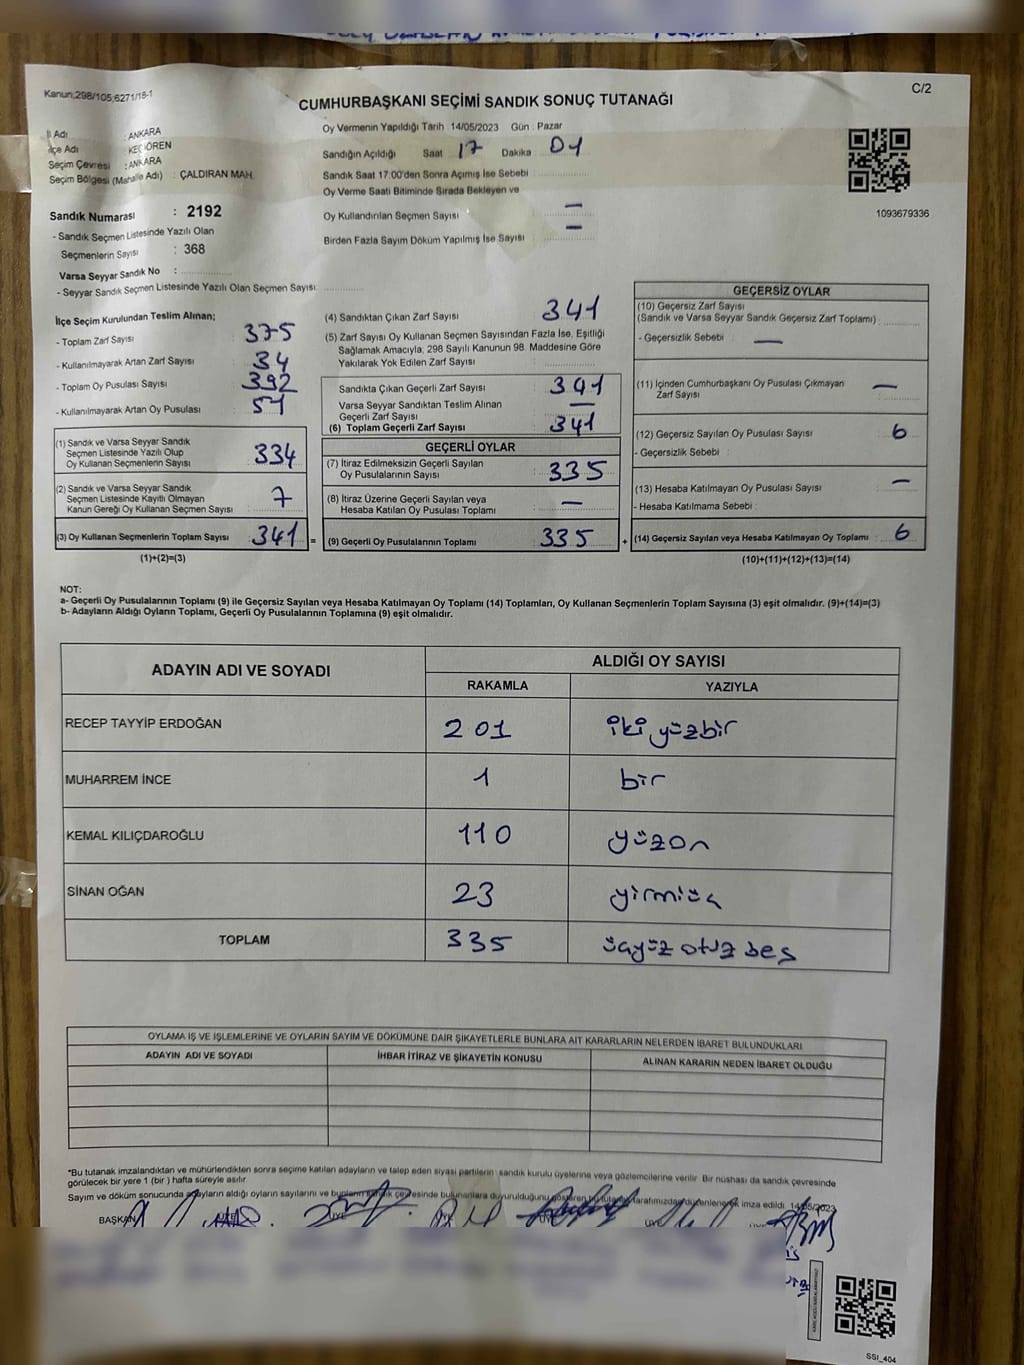 Kanun;298/105;6271/18-1
C/2
CUMHURBAŞKANI SEÇİMİ SANDIK SONUÇ TUTANAĞI
İl Adı : ANKARA
İlçe Adı KEÇİÖREN
Seçim Çevresi : ANKARA
Seçim Bölgesi (Mahalle Adı) : ÇALDIRAN MAH.
Sandık Numarası : 2192
- Sandık Seçmen Listesinde Yazılı Olan
Seçmenlerin Sayısı : 368
Varsa Seyyar Sandık No :
- Seyyar Sandık Seçmen Listesinde Yazılı Olan Seçmen Sayısı:
Oy Vermenin Yapıldığı Tarih 14/05/2023 Gün : Pazar
Sandığın Açıldığı Saat 17 Dakika : 01
Sandık Saat 17:00'den Sonra Açımış İse Sebebi :
Oy Verme Saati Bitiminde Sırada Bekleyen ve
Oy Kullandırılan Seçmen Sayısı : —
Birden Fazla Sayım Döküm Yapılmış İse Sayısı : —
1093679336
İlçe Seçim Kurulundan Teslim Alınan;
- Toplam Zarf Sayısı : 375
- Kullanılmayarak Artan Zarf Sayısı : 34
- Toplam Oy Pusulası Sayısı : 392
- Kullanılmayarak Artan Oy Pusulası : 51
(1) Sandık ve Varsa Seyyar Sandık
Seçmen Listesinde Yazılı Olup
Oy Kullanan Seçmenlerin Sayısı : 334
(2) Sandık ve Varsa Seyyar Sandık
Seçmen Listesinde Kayıtlı Olmayan
Kanun Gereği Oy Kullanan Seçmen Sayısı : 7
(3) Oy Kullanan Seçmenlerin Toplam Sayısı : 341 =
(1)+(2)=(3)
(4) Sandıktan Çıkan Zarf Sayısı : 341
(5) Zarf Sayısı Oy Kullanan Seçmen Sayısından Fazla İse, Eşitliği
Sağlamak Amacıyla, 298 Sayılı Kanunun 98. Maddesine Göre
Yakılarak Yok Edilen Zarf Sayısı :
Sandıkta Çıkan Geçerli Zarf Sayısı : 341
Varsa Seyyar Sandıktan Teslim Alınan
Geçerli Zarf Sayısı : —
(6) Toplam Geçerli Zarf Sayısı : 341
GEÇERLİ OYLAR
(7) İtiraz Edilmeksizin Geçerli Sayılan
Oy Pusulalarının Sayısı : 335
(8) İtiraz Üzerine Geçerli Sayılan veya
Hesaba Katılan Oy Pusulası Toplamı : —
(9) Geçerli Oy Pusulalarının Toplamı : 335 +
GEÇERSİZ OYLAR
(10) Geçersiz Zarf Sayısı
(Sandık ve Varsa Seyyar Sandık Geçersiz Zarf Toplamı) :
- Geçersizlik Sebebi : —
(11) İçinden Cumhurbaşkanı Oy Pusulası Çıkmayan
Zarf Sayısı : —
(12) Geçersiz Sayılan Oy Pusulası Sayısı : 6
- Geçersizlik Sebebi :
(13) Hesaba Katılmayan Oy Pusulası Sayısı : —
- Hesaba Katılmama Sebebi :
(14) Geçersiz Sayılan veya Hesaba Katılmayan Oy Toplamı : 6
(10)+(11)+(12)+(13)=(14)
NOT:
a- Geçerli Oy Pusulalarının Toplamı (9) ile Geçersiz Sayılan veya Hesaba Katılmayan Oy Toplamı (14) Toplamları, Oy Kullanan Seçmenlerin Toplam Sayısına (3) eşit olmalıdır. (9)+(14)=(3)
b- Adayların Aldığı Oyların Toplamı, Geçerli Oy Pusulalarının Toplamına (9) eşit olmalıdır.
ADAYIN ADI VE SOYADI ALDIĞI OY SAYISI
RAKAMLA YAZIYLA
RECEP TAYYİP ERDOĞAN 201 iki yüzbir
MUHARREM İNCE 1 bir
KEMAL KILIÇDAROĞLU 110 yüzon
SİNAN OĞAN 23 yirmiüç
TOPLAM 335 üçyüz otuz beş
OYLAMA İŞ VE İŞLEMLERİNE VE OYLARIN SAYIM VE DÖKÜMÜNE DAİR ŞİKAYETLERLE BUNLARA AİT KARARLARIN NELERDEN İBARET BULUNDUKLARI
ADAYIN ADI VE SOYADI İHBAR İTİRAZ VE ŞİKAYETİN KONUSU ALINAN KARARIN NEDEN İBARET OLDUĞU
*Bu tutanak imzalandıktan ve mühürlendikten sonra seçime katılan adayların ve talep eden siyasi partilerin sandık kurulu üyelerine veya gözlemcilerine verilir. Bir nüshası da sandık çevresinde
görülecek bir yere 1 (bir) hafta süreyle asılır.
Sayım ve döküm sonucunda adayların aldığı oyların sayılarını ve bunların sandık çevresinde bulunanlara duyurulduğunu gösteren bu tutanak tarafımızdan düzenlenerek imza edildi. 14/05/2023
BAŞKAN ÜYE ÜYE ÜYE ÜYE ÜYE
SSİ_404